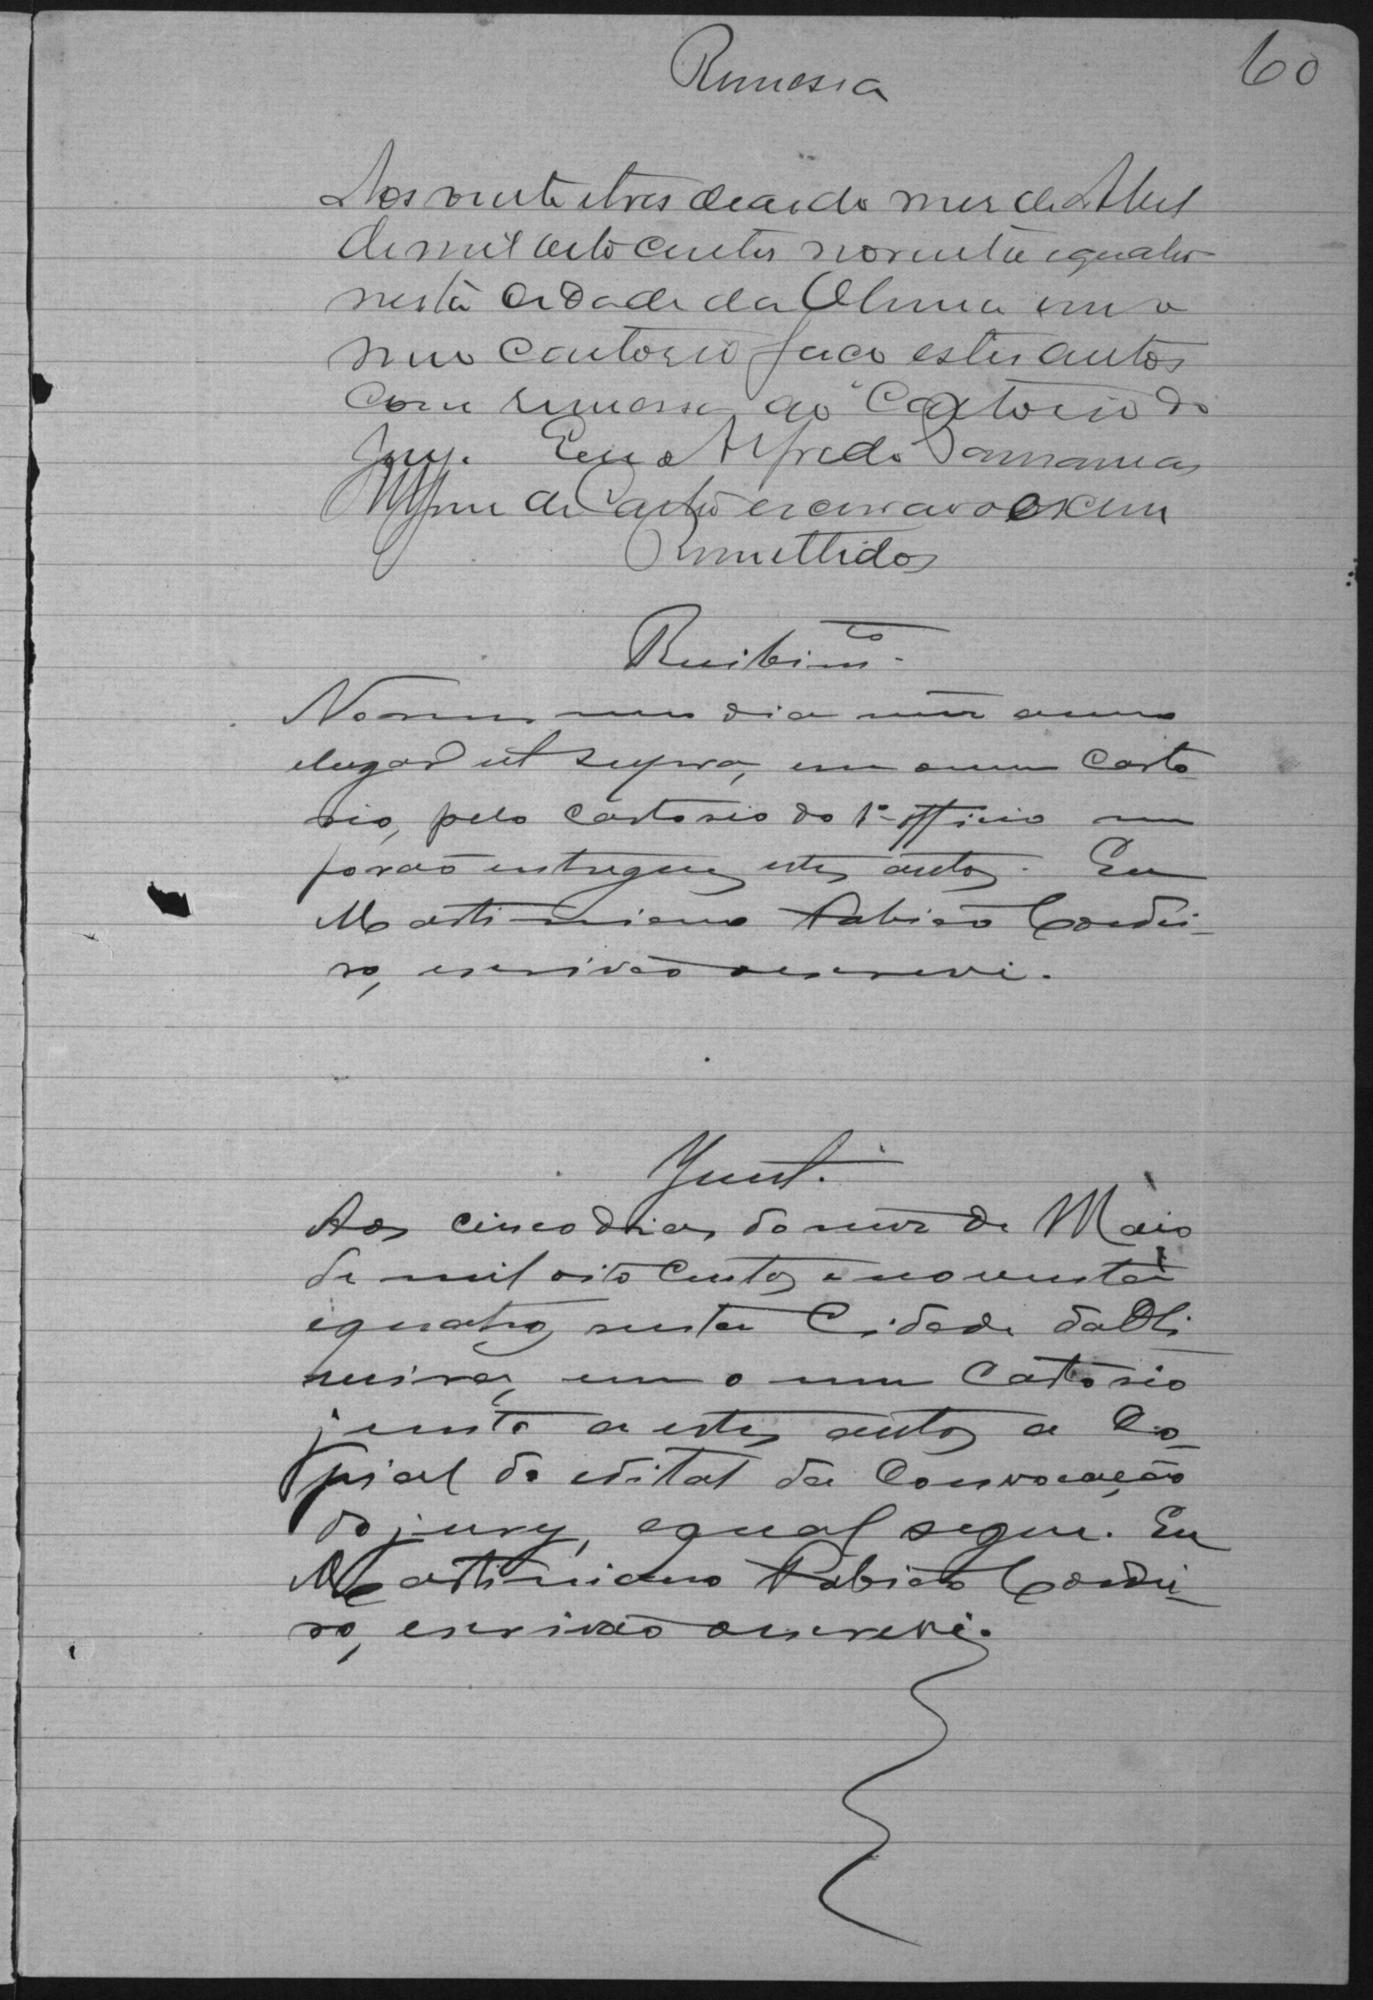 60
Remessa
Aos vinte e tres dias do mes de Abril
de mil oito centos noventa e quatro
nesta Cidade da Oliveira em o
meu Cartorio faco estes autos
com remessa ao Cartorio do
Jury. Eu Alfredo
de Castro escrivão o escrevi
Remettidos
Recibimto.
No mesmo dia mez anno
e lugar ut supra, em o meu carto
rio, pelo cartorio do 1º officio me
forão entregues estes autos. Eu
Martiniano Fabião Cordei-
ro, escrivão o escrevi.
Junt.
Aos cinco dias do mez de Maio
de mil oito centos e noventa
e quatro, nesta Cidade da Oli
veira, em o meu Cartorio
junto a estes autos a Co-
pia do edital da Convocação
do jury, e qual segue. Eu
Martiniano Fabião Cordei-
ro, escrivão o escrevi.